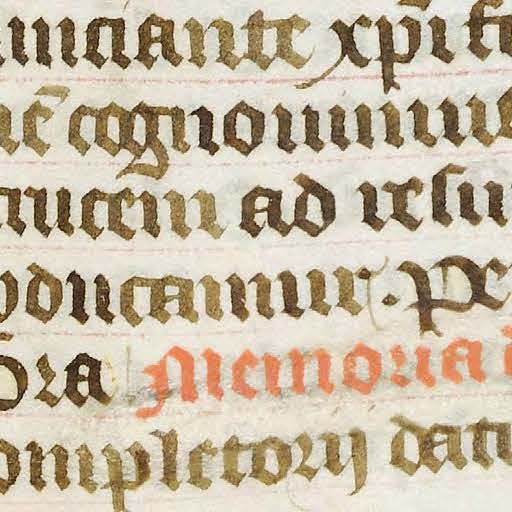 unciante xp̄i fi
nē cognouimu
rucem ad resu
ducamur. Pe
ōra Memoria
ompletorij